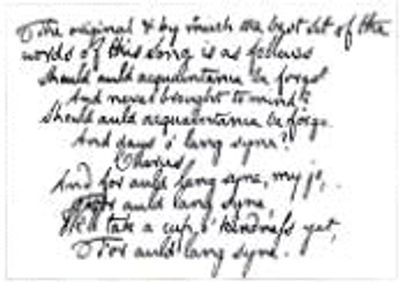 The original & by much the best set of the
words of this song is as follows
Should auld acquaintance be forgot
And never brought to mind
Should auld acquaintance be forgo
And days o' lang syne?
Chorus
And for auld lang syne, my jo,
For auld lang syne,
We'll take a cup o' kindness yet,
For auld lang syne.